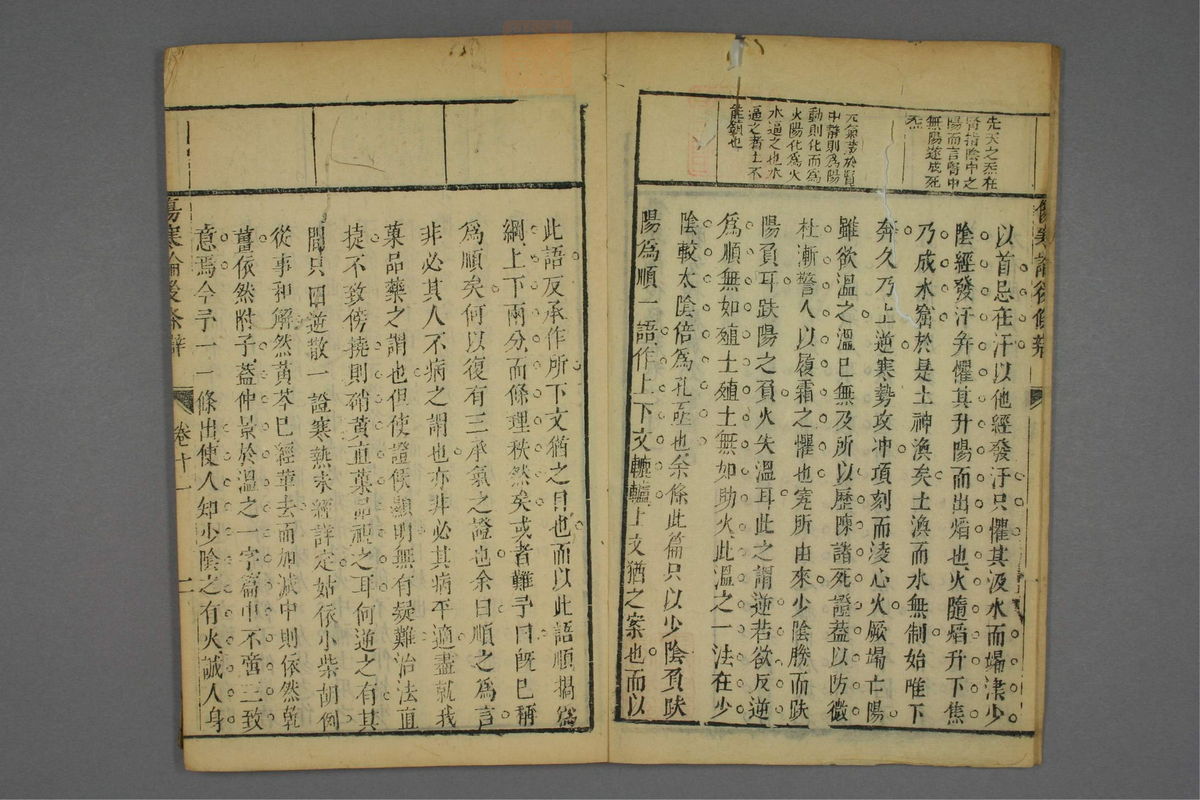 先天之炁在
腎指陰中之
陽而言腎中
無陽遂成死
炁
元氣藏於腎
中靜則為陽
動則化而為
火陽化為火
水逼之也水
逼之者土不
能鎮也
以首忌在汗以他經發汗只懼其汲水而竭津少
陰經發汗弁懼其升陽而出焰也火隨焰升下焦
乃成水窟於是土神渙矣土渙而水無制始唯下
奔久乃上逆寒勢攻冲項刻而淩心火厥竭亡陽
雖欲溫之溫巳無及所以歷陳諸死證葢以防微
杜漸警人以履霜之懼也究所由來少陰勝而趺
陽負耳趺陽之負火失溫耳此之謂逆若欲反逆
爲順無如殖土殖土無如助火此溫之一法在少
陰較太陰倍爲孔亟也余條此篇只以少陰負趺
陽爲順一語作上下文轆轤上文猶之案也而以
傷寒論後條辨
此語反承作所下文猶之目也而以此語順揭爲
綱上下兩分而條理秩然矣或者難予曰旣巳稱
爲順矣何以復有三承氣之證也余曰順之爲言
非必其人不病之謂也亦非必其病平適盡就我
菓品藥之謂也但使證候顯明無有疑難治法直
捷不致傍撓則硝黃直菓品視之耳何逆之有其
間只四逆散一證寒熱未經詳定姑依小柴胡例
從事和解然黃芩巳經革去而加減中則依然乾
薑依然附子葢仲景於溫之一字篇中不啻三致
意焉今予一一條出使人知少陰之有火誠人身
傷寒論後條辨
卷十一
二